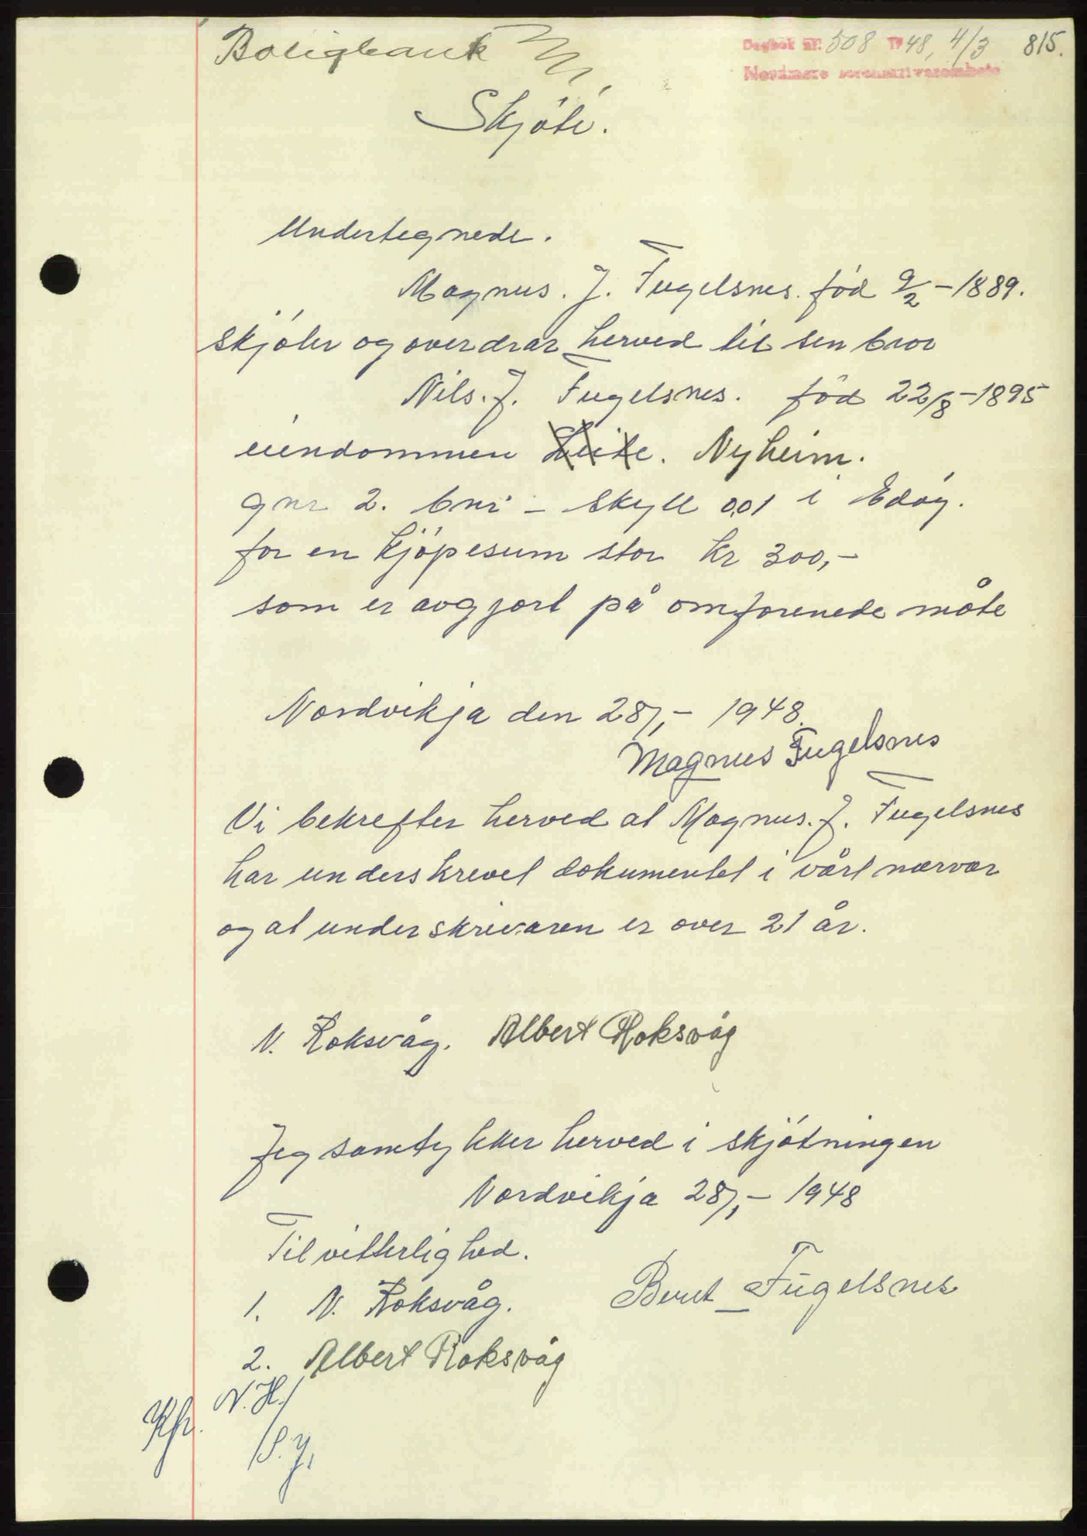 Boligbank
Dagbok nr. 508 19 48, 4/3 815.
Nordmøre sorenskriverembete
Skjöte.
Undertegnede.
Magnus. J. Fugelsnes. föd 9/2 - 1889.
skjöter og overdrar herved til sin bror
Nils. J. Fugelsnes. föd 22/8 - 1895
eiendommen Nyheim.
gnr 2. bnr - skyll 0,01 i Edöy.
for en kjöpesum stor kr 300,-
som er avgjort på omforenede måte
Nordvikja den 28/1 - 1948.
Magnus Fugelsnes
Vi bekrefter herved at Magnus. J. Fugelsnes
har underskrevet dokumentet i vårt nærvær
og at underskrivaren er over 21 år.
N. Roksvåg. Albert Roksvåg
Jeg samtykker herved i skjötningen
Nordvikja 28/1 - 1948
Til vitterlighed.
1. N. Roksvåg. Berit Fugelsnes
2. Albert Roksvåg
Kfr. N. H./
/S. J.